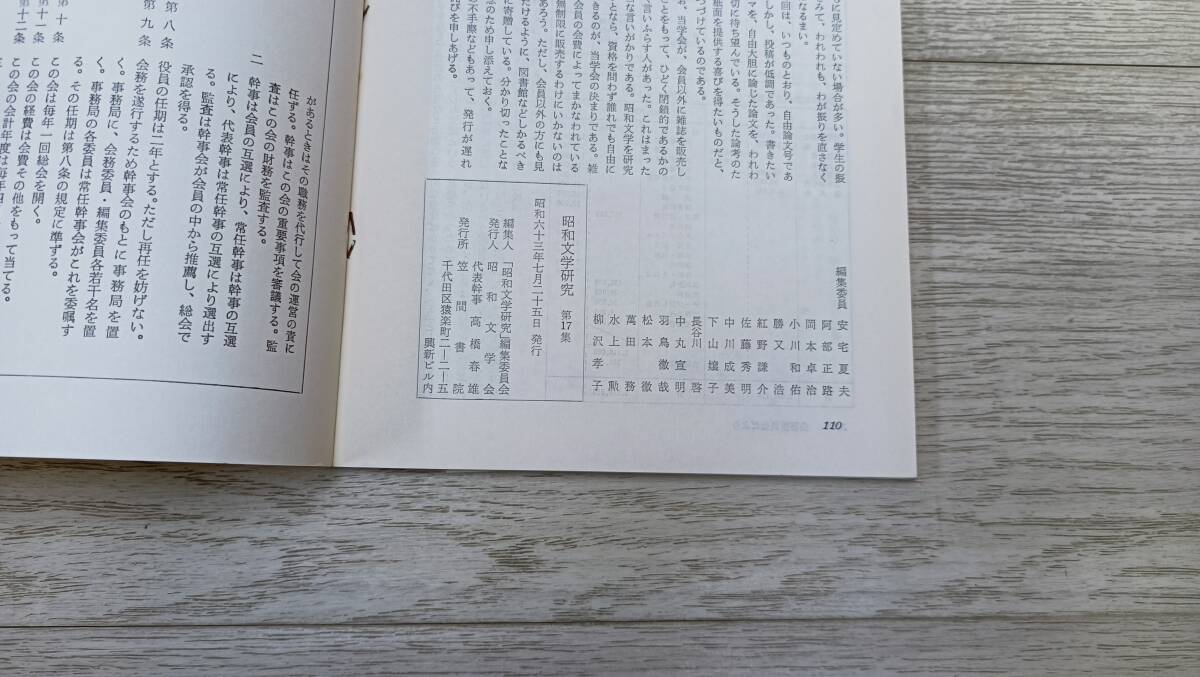 に見定めていない場合が多い。学生の振
みて、われわれも、わが振りを直さなく
なるまい。
回は、いつものとおり、自由論文号であ
しかし、投稿が低調であった。書きたい
マを、自由大胆に論じた論文を、われわ
切に待ち望んでいる。そうした論考のた
紙面を提供する喜びを得たいものだと、
つづけているのである。
お、当学会が、会員以外に雑誌を販売し
ことをもって、ひどく閉鎖的であるかの
言いふらす人があった。これはまった
な言いがかりである。昭和文学を研究
ことなら、資格を問わず誰れでも自由に
きるのが、当学会の決まりである。雑
会員の会費によってまかなわれている
無制限に販売するわけにいかないのは
あろう。ただし、会員以外の方にも見
だけるように、図書館などしかるべき
に寄贈している。分かり切ったことな
念のため申し添えておく。
の不手際などもあって、発行が遅れ
詫びを申しあげる。
編集委員
安宅夏夫
阿部正路
岡本卓治
小川和佑
勝又浩
紅野謙介
佐藤秀明
中川成美
下山孃子
長谷川啓
中丸宣明
羽鳥徹哉
松本徹
萬田務
水上勲
柳沢孝子
昭和文学研究 第17集
昭和六十三年七月二十五日 発行
編集人 「昭和文学研究」編集委員会
発行人 昭和文学会
代表幹事 高橋春雄
発行所 笠間書院
千代田区猿楽町二―二―五
興新ビル内
110
があるときはその職務を代行して会の運営の責に
任ずる。幹事はこの会の重要事項を審議する。監
査はこの会の財務を監査する。
二 幹事は会員の互選により、常任幹事は幹事の互選
により、代表幹事は常任幹事の互選により選出す
る。監査は幹事会が会員の中から推薦し、総会で
承認を得る。
第八条 役員の任期は二年とする。ただし再任を妨げない。
第九条 会務を遂行するため幹事会のもとに事務局を置
く。事務局に、会務委員・編集委員各若干名を置
く。事務局の各委員は常任幹事会がこれを委嘱す
る。その任期は第八条の規定に準ずる。
第十条 この会は毎年一回総会を開く。
第十一条 この会の経費は会費その他をもって当てる。
第十二条 この会の会計年度は毎年四